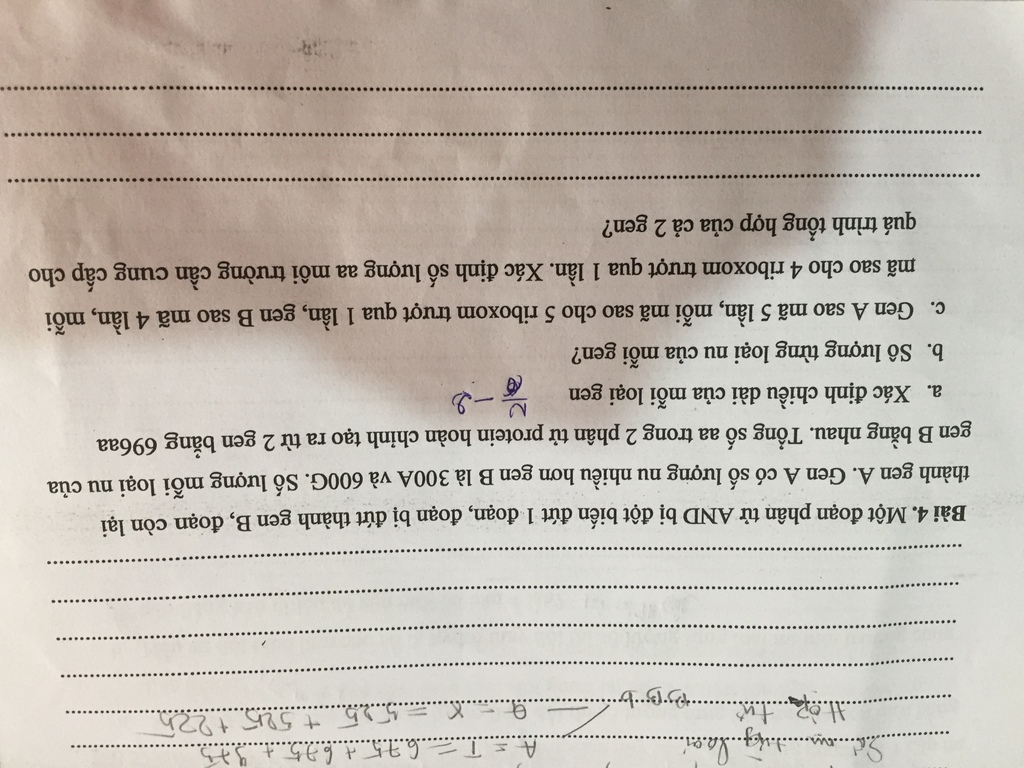 Số nu từng loại A = T = 675 + 675 + 375
Hợp tử BBb G = X = 525 + 525 + 225
Bài 4. Một đoạn phân tử AND bị đột biến đứt 1 đoạn, đoạn bị đứt thành gen B, đoạn còn lại
thành gen A. Gen A có số lượng nu nhiều hơn gen B là 300A và 600G. Số lượng mỗi loại nu của
gen B bằng nhau. Tổng số aa trong 2 phân tử protein hoàn chỉnh tạo ra từ 2 gen bằng 696aa
a. Xác định chiều dài của mỗi loại gen
b. Số lượng từng loại nu của mỗi gen?
c. Gen A sao mã 5 lần, mỗi mã sao cho 5 riboxom trượt qua 1 lần, gen B sao mã 4 lần, mỗi
mã sao cho 4 riboxom trượt qua 1 lần. Xác định số lượng aa môi trường cần cung cấp cho
quá trình tổng hợp của cả 2 gen?